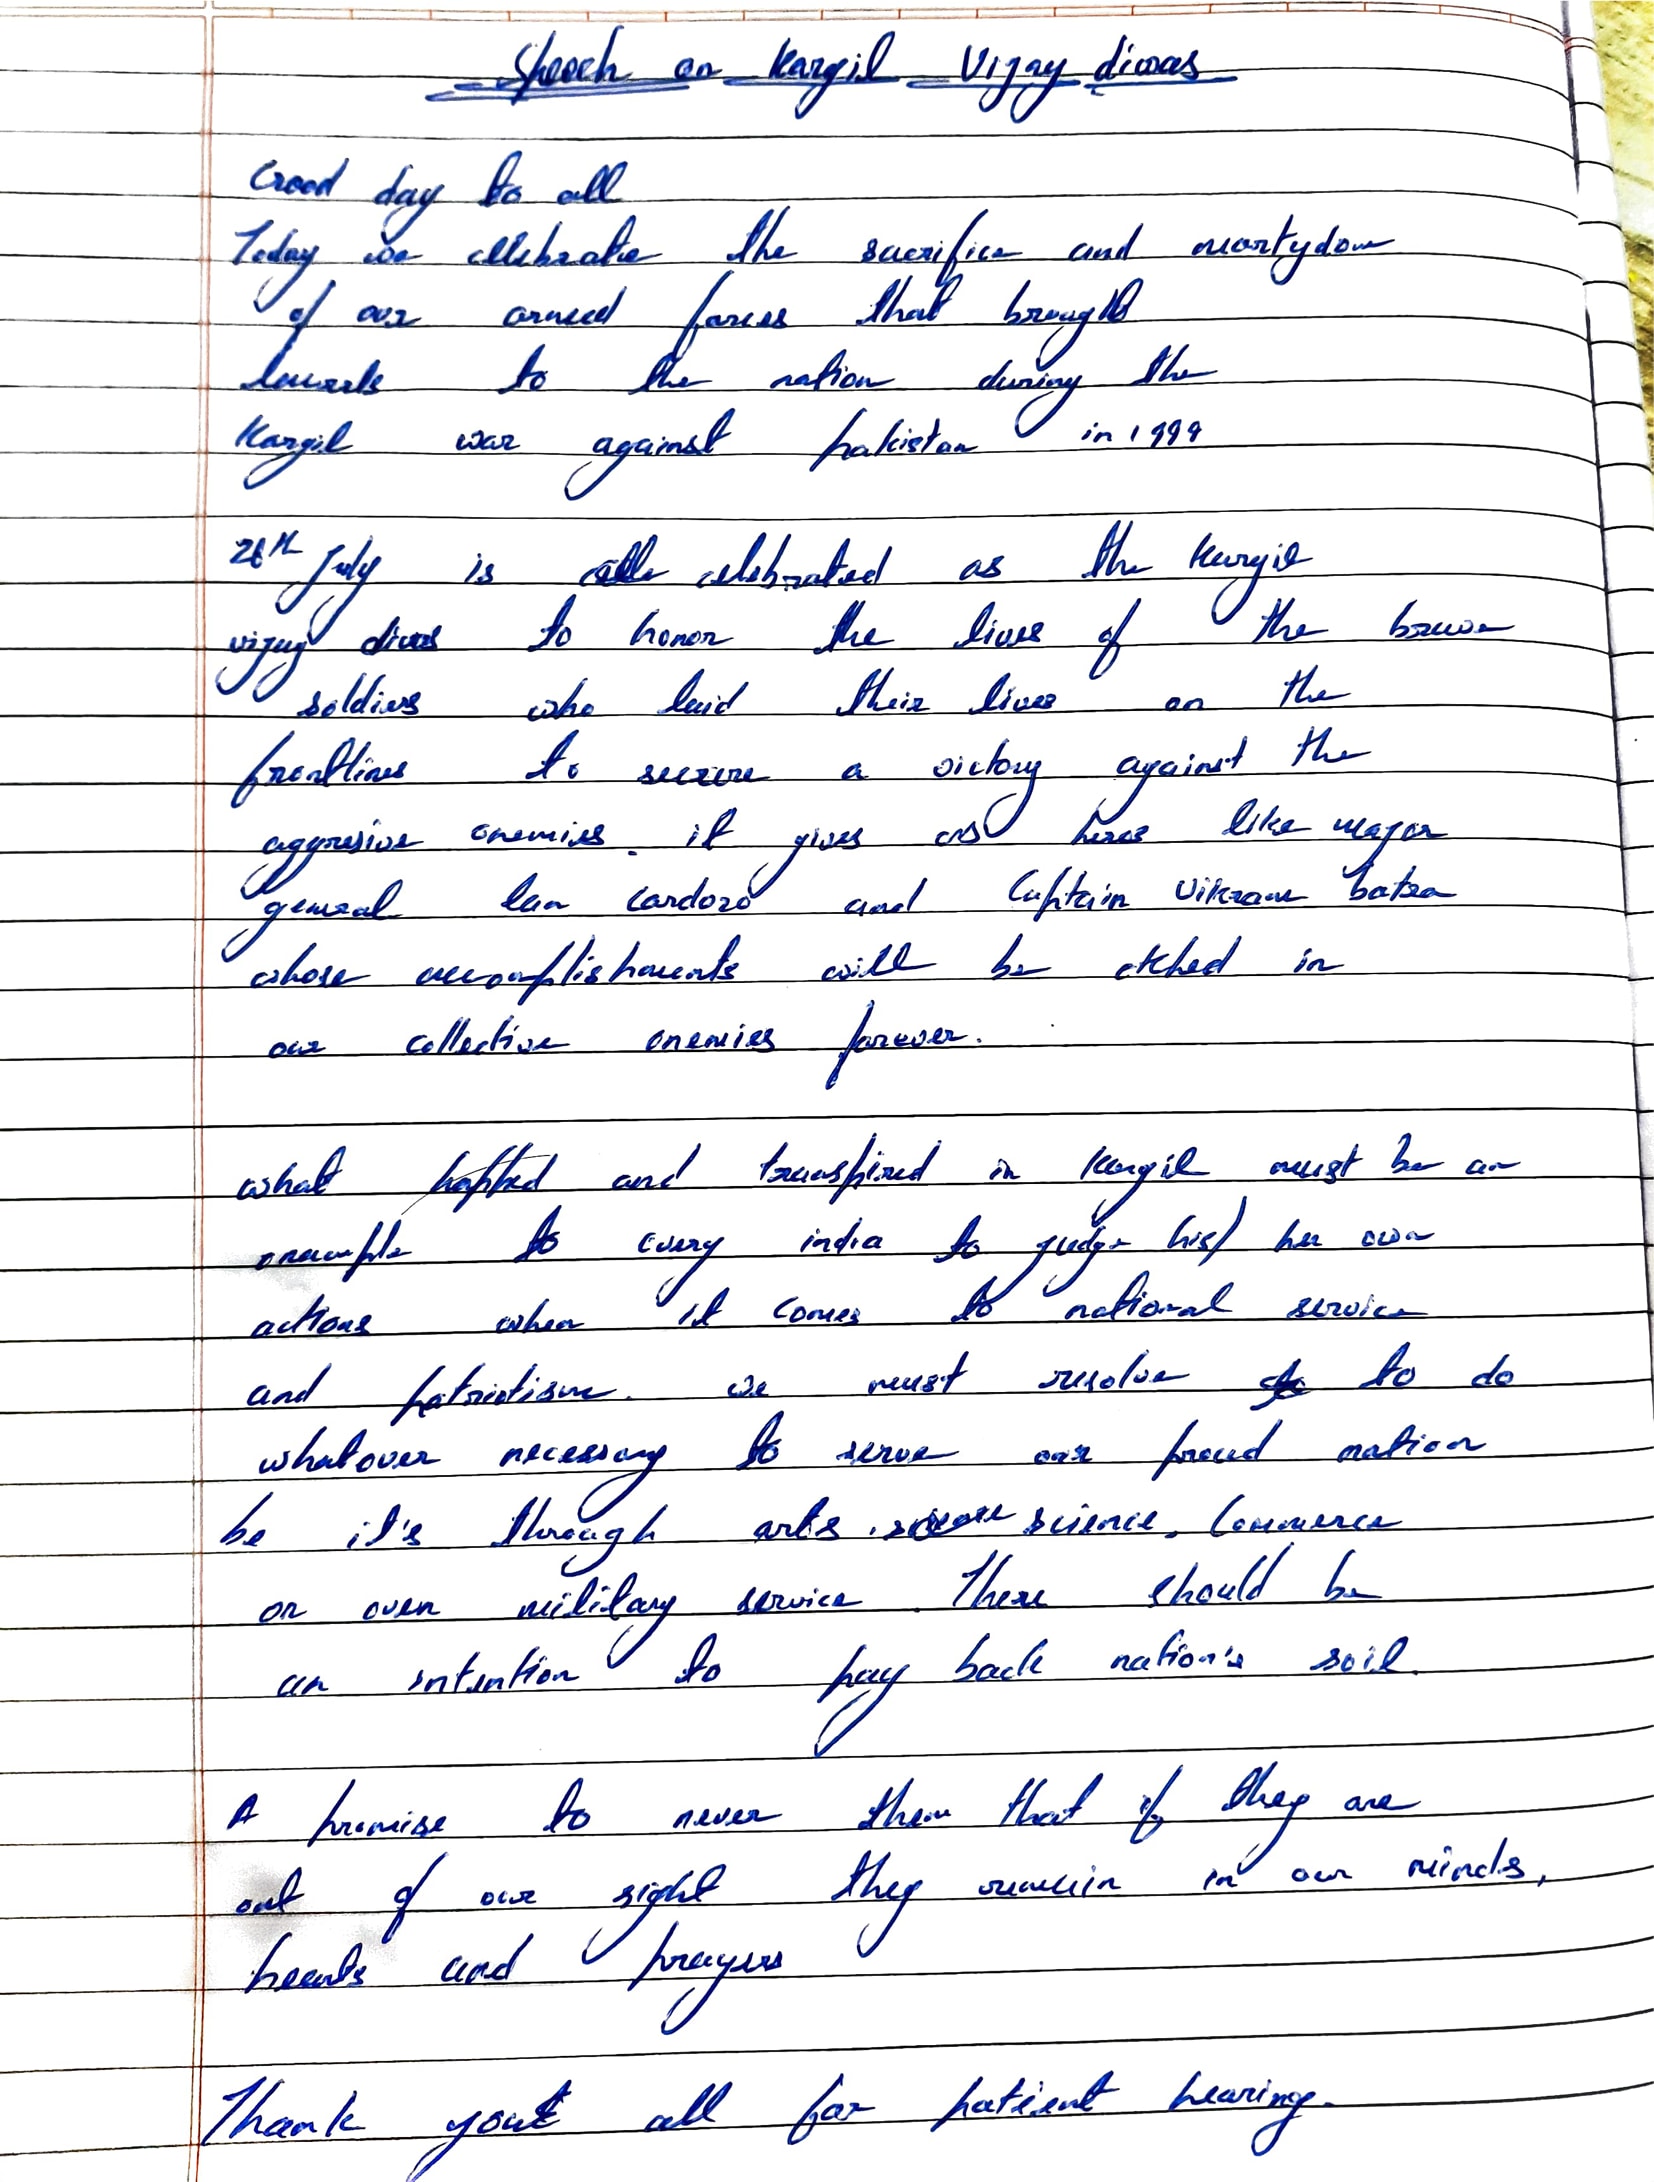 Speech on Kargil Vijay diwas
Good day to all
Today we celebrate the sacrifice and martydom
of our armed forces that brought
laurels to the nation during the
Kargil war against pakistan in 1999
26th July is celebrated as the Kargil
vijay diwas to honor the lives of the brave
soldiers who laid their lives on the
frontlines to secure a victory against the
aggresive enemies. it gives us heros like major
general Ian cardozo and Captain Vikram batra
whose accomplishments will be etched in
our collective enemies forever.
what and transpired in Kargil must be an
example to every india to judge his/ her own
actions when it comes to national service
and patriotism. we must resolve to do
whatever necessary to serve our proud nation
be it's through arts, science, Commerce
or even military service. There should be
an intention to pay back nation's soil.
A promise to never them that if they are
out of our sight they remain in our minds,
hearts and prayers
Thank you all for patient hearing.